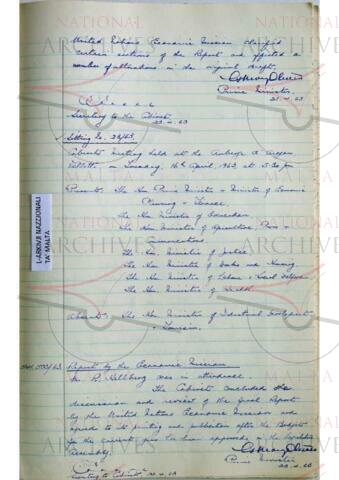 United Nations Economic Mission clarified
certain sections of the Report and effected a
number of alterations in the original draft.
Prime Minister
23.4.63
Secretary to the Cabinet
23.4.63
Sitting No. 24/63.
Cabinet meeting held at the Auberge d'Aragon
Valletta, on Tuesday, 16th April, 1963 at 5.30 pm
Present: The Hon. Prime Minister & Minister of Economic
Planning & Finance.
The Hon. Minister of Education
The Hon. Minister of Agriculture, Power &
Communications
The Hon. Minister of Justice.
The Hon. Minister of Works and Housing.
The Hon. Minister of Labour & Social Welfare
The Hon. Minister of Health.
Absent: The Hon. Minister of Industrial Development
& Tourism.
L-ARKIVJI NAZZJONALI
TA' MALTA
Report by the Economic Mission
Mr. R. was in attendance.
The Cabinet concluded the
discussion and review of the final Report
by the United Nations Economic Mission and
agreed to its printing and publication after the Budget
for the current year has been approved by the Legislative
Assembly.
Prime Minister
23.4.63
Secretary to Cabinet 23.4.63
NATIONAL
ARCHIVES